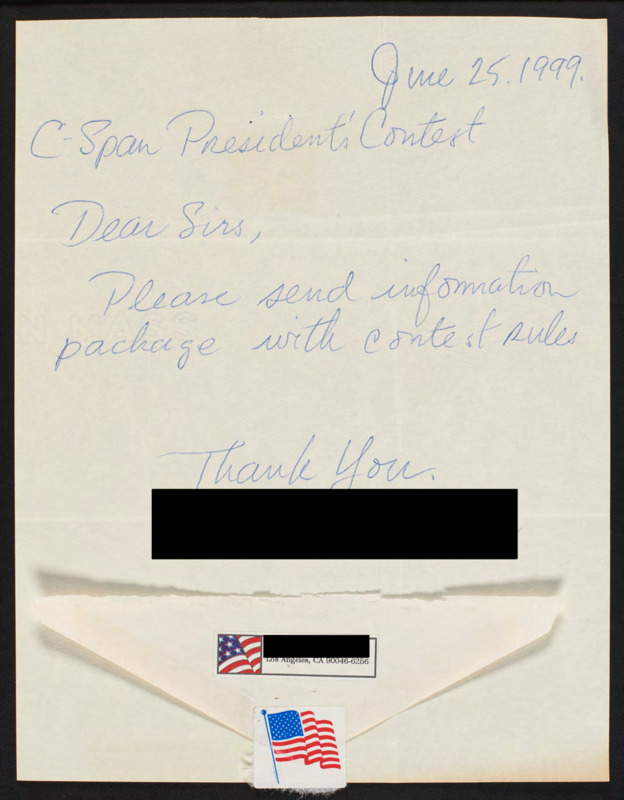 June 25. 1999.
C-Span President's Contest
Dear Sirs,
Please send information
package with contest rules
Thank You.
Los Angeles, CA 90046-6256